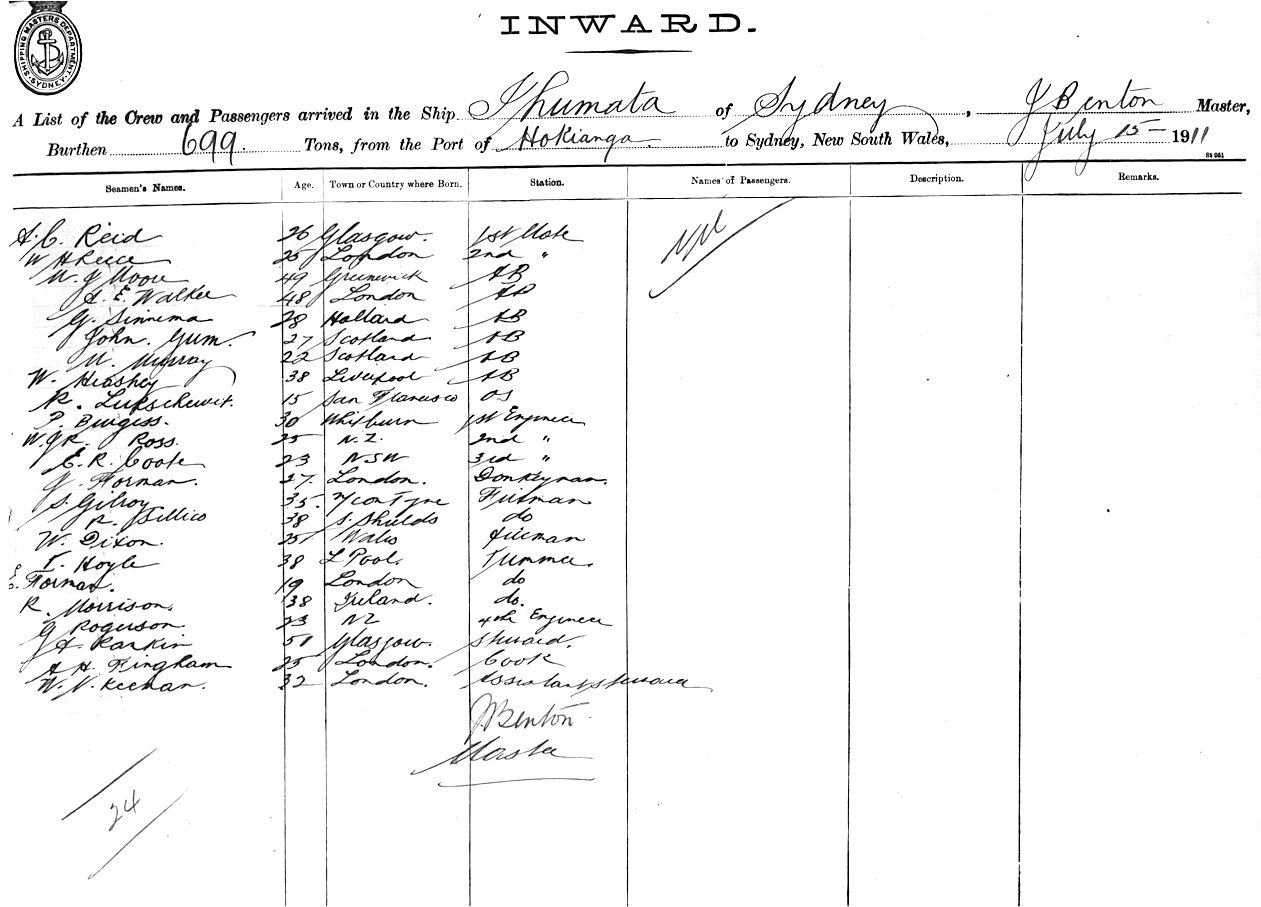 INWARD.
SHIPPING MASTERS DEPARTMENT SYDNEY
A List of the Crew and Passengers arrived in the Ship Ihumata of Sydney, J Benton Master,
Burthen 699 Tons, from the Port of Hokianga to Sydney, New South Wales, July 15 1911
St 951
Seamen's Names. Age. Town or Country where Born. Station. Names of Passengers. Description. Remarks.
A. C. Reid 26 Glasgow. 1st Mate Nil
W H Reece 25 London 2nd "
M. J Moore 49 Greenwick AB
A. E. Walker 48 London AB
G. Sinnema 28 Holland AB
John. Gum. 27 Scotland AB
M. Murray 22 Scotland AB
W. Heashey 38 Liverpool AB
R. 15 San Francisco OS
P. Burgess. 30 Whitburn 1st Engineer
W. J R. Ross. 25 N.Z. 2nd "
E. R. Cook 23 NSW 3rd "
J. Forman. 27. London. Donkeyman.
S. Gilroy 35. N/ con Tyne Fireman
R. Jellico 38 S. Shields do
W. Dixon. 25 Wales Fireman
T. Hoyle 38 L Pool. Trimmer.
Forman. 19 London do
R. Morrison. 38 Ireland. do.
G Rogerson 23 NZ 4th Engineer
J. Rankin 51 Glasgow. Steward.
A H. Fingham 25 London. Cook
W. N. Keenan. 32 London. Assistant Steward
J. Benton
Master
24